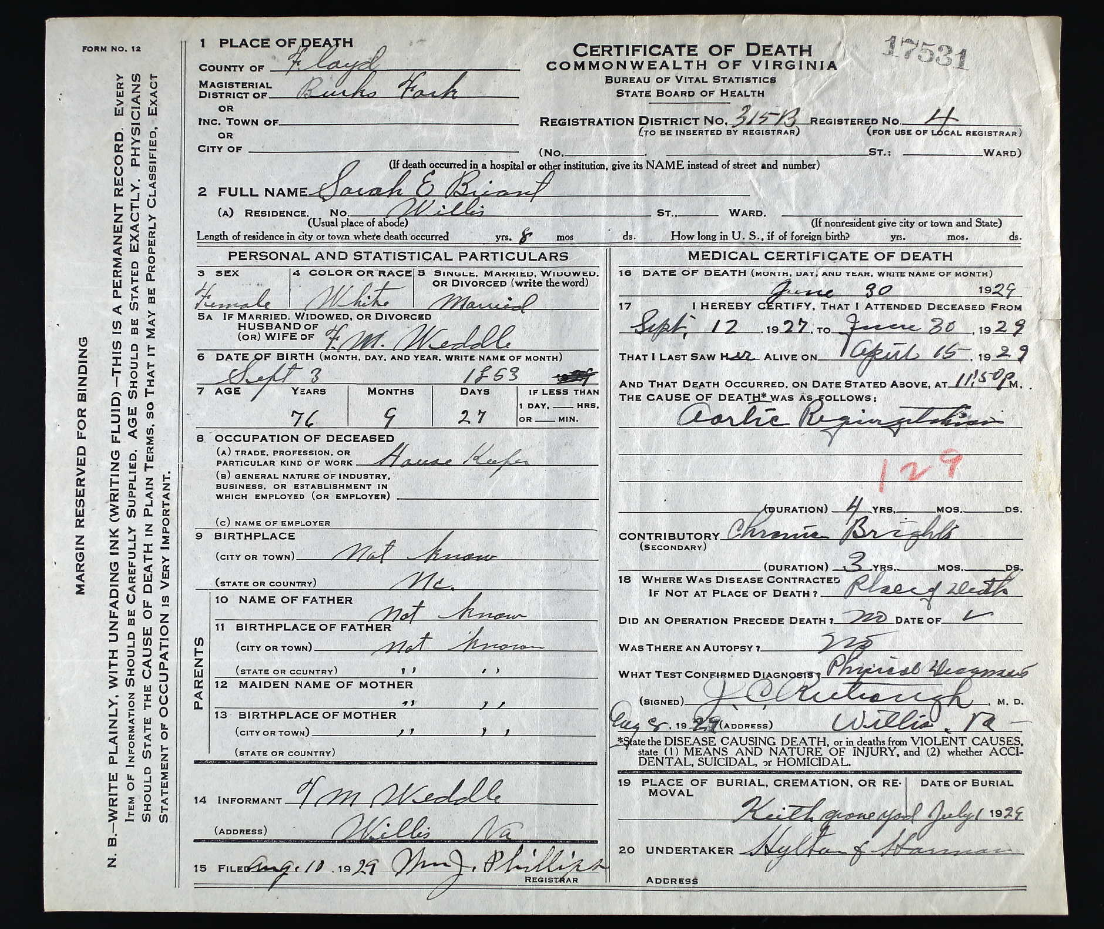 FORM NO. 12
MARGIN RESERVED FOR BINDING
N. B.—WRITE PLAINLY, WITH UNFADING INK (WRITING FLUID)—THIS IS A PERMANENT RECORD. EVERY
ITEM OF INFORMATION SHOULD BE CAREFULLY SUPPLIED. AGE SHOULD BE STATED EXACTLY. PHYSICIANS
SHOULD STATE THE CAUSE OF DEATH IN PLAIN TERMS, SO THAT IT MAY BE PROPERLY CLASSIFIED. EXACT
STATEMENT OF OCCUPATION IS VERY IMPORTANT.
17531
CERTIFICATE OF DEATH
COMMONWEALTH OF VIRGINIA
BUREAU OF VITAL STATISTICS
STATE BOARD OF HEALTH
1 PLACE OF DEATH
COUNTY OF Floyd
MAGISTERIAL DISTRICT OF Burks Fork
OR
INC. TOWN OF
OR
CITY OF
REGISTRATION DISTRICT NO. 315B REGISTERED NO. 4
(TO BE INSERTED BY REGISTRAR) (FOR USE OF LOCAL REGISTRAR)
(NO. ST.: WARD)
(If death occurred in a hospital or other institution, give its NAME instead of street and number)
2 FULL NAME Sarah E Briant
(A) RESIDENCE. NO. Willis ST., WARD.
(Usual place of abode) (If nonresident give city or town and State)
Length of residence in city or town where death occurred yrs. 8 mos ds. How long in U. S., if of foreign birth? yrs. mos. ds.
PERSONAL AND STATISTICAL PARTICULARS
3 SEX 4 COLOR OR RACE 5 SINGLE, MARRIED, WIDOWED, OR DIVORCED (write the word)
Female White Married
5A IF MARRIED, WIDOWED, OR DIVORCED
HUSBAND OF
(OR) WIFE OF F. M. Weddle
6 DATE OF BIRTH (MONTH, DAY, AND YEAR, WRITE NAME OF MONTH)
Sept 3 1853
7 AGE YEARS MONTHS DAYS IF LESS THAN
1 DAY, HRS.
OR MIN.
76 9 27
8 OCCUPATION OF DECEASED
(A) TRADE, PROFESSION, OR
PARTICULAR KIND OF WORK House Keeper
(B) GENERAL NATURE OF INDUSTRY,
BUSINESS, OR ESTABLISHMENT IN
WHICH EMPLOYED (OR EMPLOYER)
(C) NAME OF EMPLOYER
9 BIRTHPLACE
(CITY OR TOWN) Not know
(STATE OR COUNTRY) Nc.
PARENTS
10 NAME OF FATHER Not know
11 BIRTHPLACE OF FATHER
(CITY OR TOWN) Not known
(STATE OR COUNTRY) " "
12 MAIDEN NAME OF MOTHER " "
13 BIRTHPLACE OF MOTHER
(CITY OR TOWN) " "
(STATE OR COUNTRY)
14 INFORMANT F M Weddle
(ADDRESS) Willis Va
15 FILED Aug. 10. 1929 Wm J. Phillips
REGISTRAR
MEDICAL CERTIFICATE OF DEATH
16 DATE OF DEATH (MONTH, DAY, AND YEAR, WRITE NAME OF MONTH)
June 30 1929
17 I HEREBY CERTIFY, THAT I ATTENDED DECEASED FROM
Sept, 12, 1927, TO June 30, 1929
THAT I LAST SAW Her ALIVE ON April 15, 1929
AND THAT DEATH OCCURRED, ON DATE STATED ABOVE, AT 11:50 P M.
THE CAUSE OF DEATH* WAS AS FOLLOWS:
Aortic Regurgitation
129
(DURATION) 4 YRS. MOS. DS.
CONTRIBUTORY Chronic Brights
(SECONDARY)
(DURATION) 3 YRS. MOS. DS.
18 WHERE WAS DISEASE CONTRACTED
IF NOT AT PLACE OF DEATH? Place of Death
DID AN OPERATION PRECEDE DEATH? No DATE OF
WAS THERE AN AUTOPSY? No
WHAT TEST CONFIRMED DIAGNOSIS? Physical Diagnosis
(SIGNED) J. C. M. D.
Aug 8. 1929 (ADDRESS) Willis, Va
*State the DISEASE CAUSING DEATH, or in deaths from VIOLENT CAUSES,
state (1) MEANS AND NATURE OF INJURY, and (2) whether ACCI-
DENTAL, SUICIDAL, or HOMICIDAL.
19 PLACE OF BURIAL, CREMATION, OR RE- DATE OF BURIAL
MOVAL
Keith grave yard July 1 1929
20 UNDERTAKER Hylton & Harman
ADDRESS